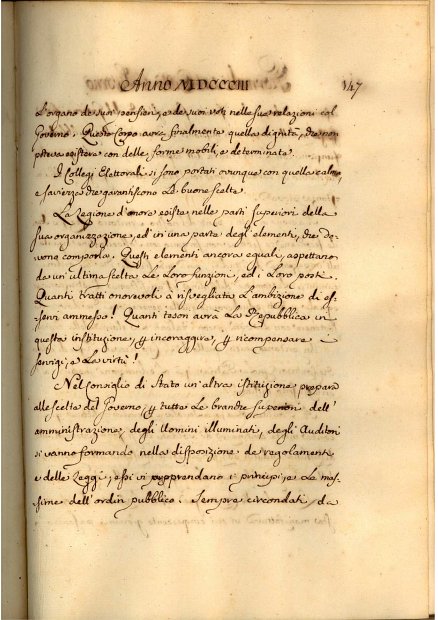 Anno MDCCCIII 147
L'organo de suoi pensieri, e de suoi voti nelle sue relazioni col
Governo. Questo Corpo avrà finalmente quella dignità, che non
poteva esistere con delle forme mobili, e determinate.
I Collegi Elettorali si sono portati ovunque con quella calma,
e saviezza che garantiscono le buone scelte.
La Legione d'onore esiste nelle parti superiori della
sua organizzazione, ed in una parte degl'elementi, che de-
vono comporla. Questi elementi ancora eguali, aspettano
da un'ultima scelta le loro funzioni, ed i loro posti.
Quanti tratti onorevoli à risvegliato l'ambizione di es-
servi ammesso! Quanti tesori avrà la Repubblica in
questa instituzione, p incoraggire, p ricompensare i
servigi, e la virtù!
Nel Consiglio di Stato un'altra istituzione prepara
alle scelte del Governo, p tutte le branche superiori dell'
amministrazione, degli Uomini illuminati, degli Auditori
si vanno formando nella disposizione de regolamenti
e delle Leggi, essi vi apprendano i principi, e le mas-
sime dell'ordin pubblico. Sempre circondati da